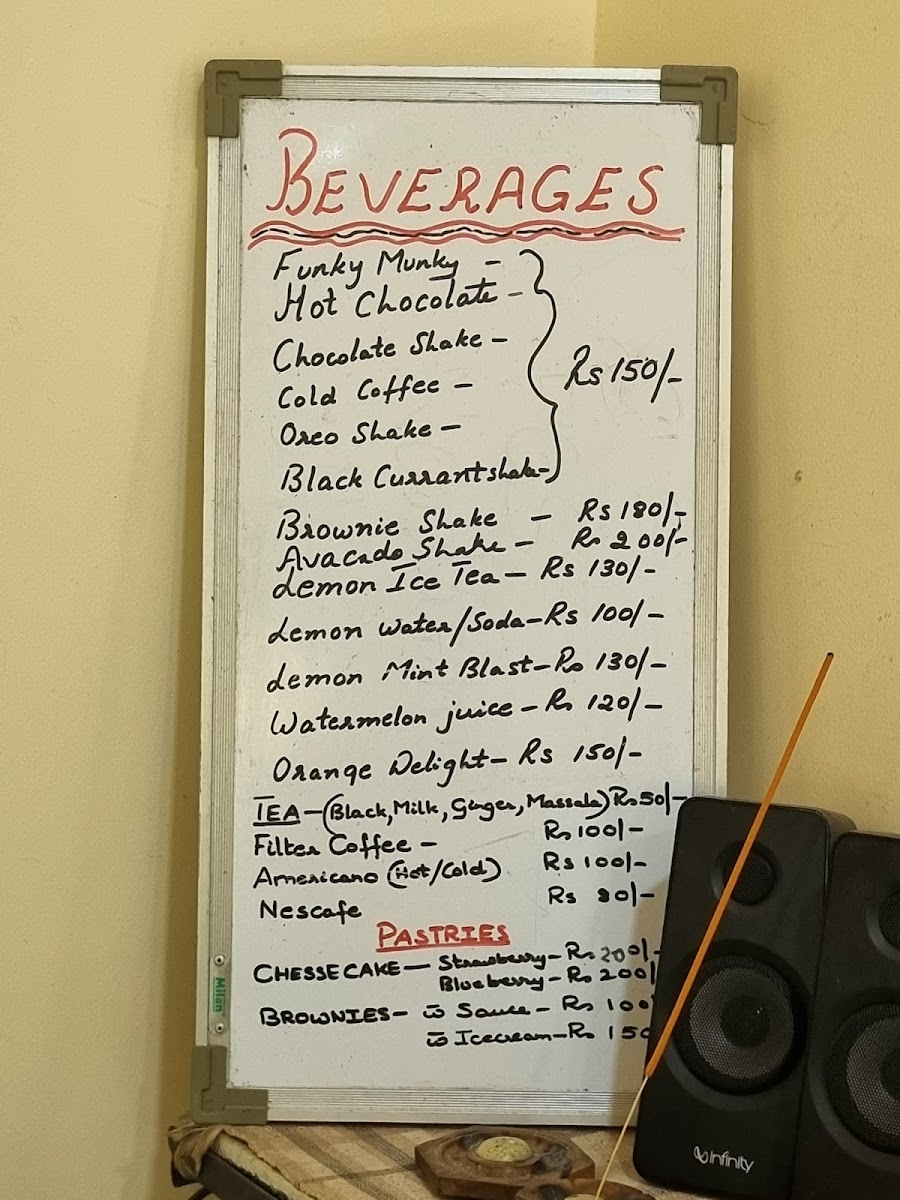 BEVERAGES
Funky Munky -
Hot Chocolate -
Chocolate Shake -
Cold Coffee -
Rs 150/-
Oreo Shake -
Black Currant shake -
Brownie Shake - Rs 180/-
Avacado Shake - Rs 200/-
Lemon Ice Tea - Rs 130/-
Lemon water/Soda - Rs 100/-
Lemon Mint Blast - Rs 130/-
Watermelon juice - Rs 120/-
Orange Delight - Rs 150/-
TEA - (Black, Milk, Ginger, Massala) Rs 50/-
Filter Coffee - Rs 100/-
Americano (Hot/Cold) Rs 100/-
Nescafe Rs 80/-
PASTRIES
CHESSECAKE - Strawberry - Rs 200/-
Blueberry - Rs 200/
BROWNIES - w̄ Sauce - Rs 100
w̄ Icecream - Rs 150
Milan
infinity